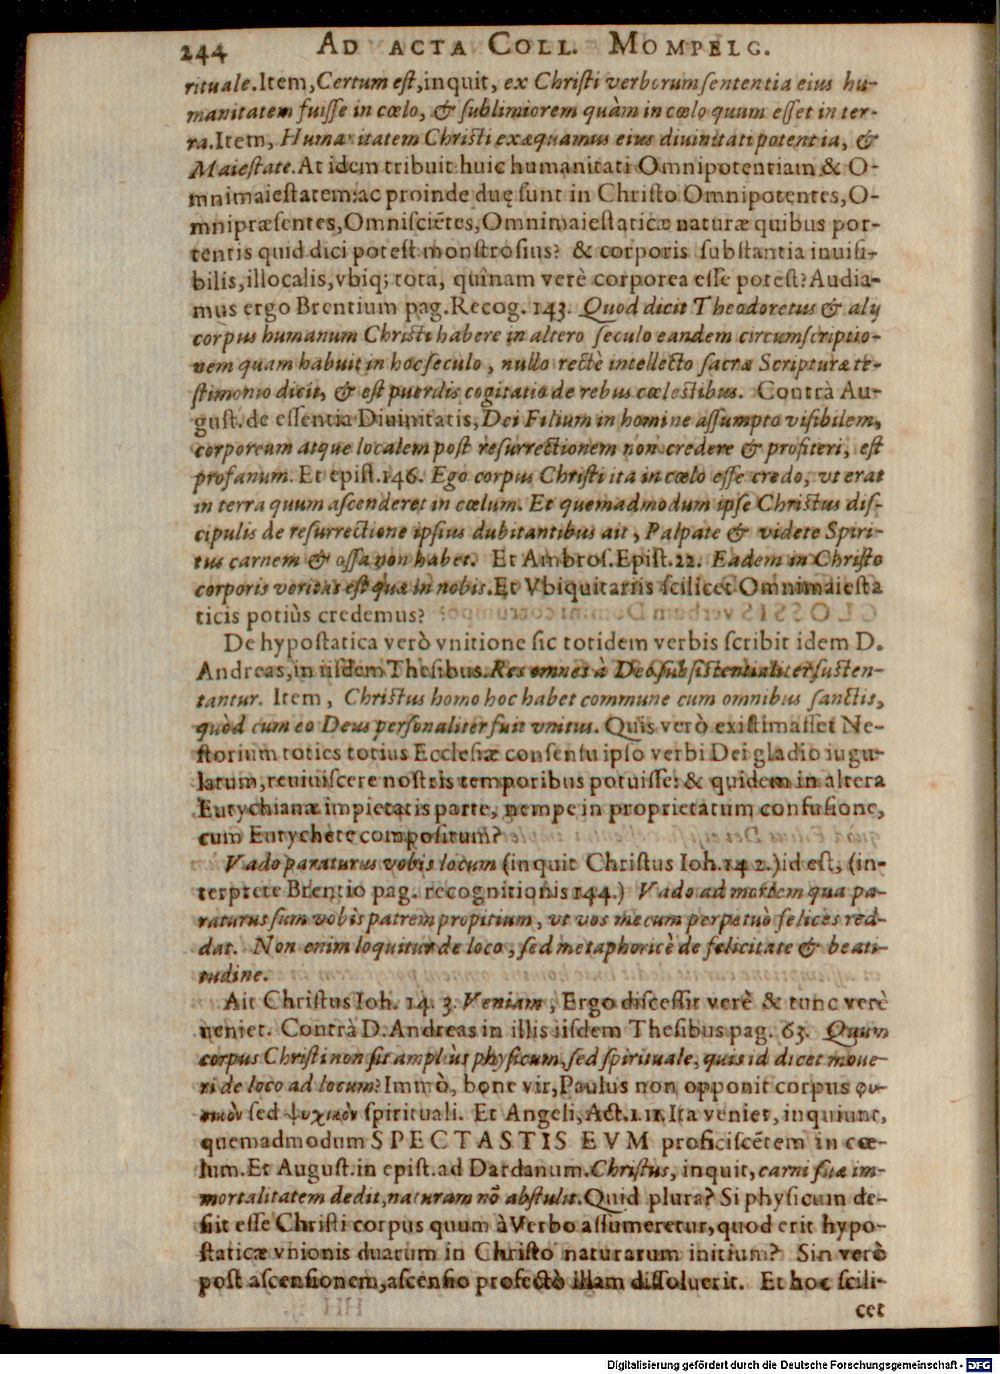 244 AD ACTA COLL. MOMPELG.
rituale. Item, Certum eſt, inquit, ex Chriſti verborum ſententia eius hu-
manitatem fuiſſe in cœlo, & ſublimiorem quàm in cœlo quum eſſet in ter-
ra. Item, Humanitatem Chriſti exæquamus eius diuinitati potentia, &
Maieſtate. At idem tribuit huic humanitati Omnipotentiam & O-
mnimaieſtatem: ac proinde duę ſunt in Chriſto Omnipotentes, O-
mnipræſentes, Omniſciẽtes, Omnimaieſtaticæ naturæ quibus por-
tentis quid dici poteſt monſtroſius? & corporis ſubſtantia inuiſi-
bilis, illocalis, vbiq; tota, quînam verè corporea eſſe poteſt? Audia-
mus ergo Brentium pag. Recog. 143. Quod dicit Theodoretus & alij
corpus humanum Chriſti habere in altero ſeculo eandem circumſcriptio-
nem quam habuit in hoc ſeculo, nullo rectè intellecto ſacræ Scripturæ te-
ſtimonio dicit, & eſt puerilis cogitatio de rebus cœleſtibus. Contrà Au-
guſt. de eſſentia Diuinitatis, Dei Filium in homine aſſumpto viſibilem,
corporeum atque localem poſt reſurrectionem non credere & profiteri, eſt
profanum. Et epiſt. 146. Ego corpus Chriſti ita in cœlo eſſe credo, vt erat
in terra quum aſcenderet in cœlum. Et quemadmodum ipſe Chriſtus diſ-
cipulis de reſurrectione ipſius dubitantibus ait, Palpate & videte Spiri-
tus carnem & oſſa non habet. Et Ambroſ. Epiſt. 22. Eadem in Chriſto
corporis veritas eſt quæ in nobis. Et Vbiquitariis ſcilicet Omnimaieſta
ticis potiùs credemus?
De hypoſtatica verò vnitione ſic totidem verbis ſcribit idem D.
Andreas, in iiſdem Theſibus. Res omnes à Deo ſubſiſtentialiter ſuſten-
tantur. Item, Chriſtus homo hoc habet commune cum omnibus ſanctis,
quòd cum eo Deus perſonaliter fuit vnitus. Quis verò exiſtimaſſet Ne-
ſtorium toties totius Eccleſiæ conſenſu ipſo verbi Dei gladio iugu-
latum, reuiuiſcere noſtris temporibus potuiſſe? & quidem in altera
Eutychianæ impietatis parte, nempe in proprietatum confuſione,
cum Eutychete compoſitum?
Vado paraturus vobis locum (inquit Chriſtus Ioh. 14 2.) id eſt, (in-
terprete Brentio pag. recognitionis 144.) Vado ad mortem qua pa-
raturus ſum vobis patrem propitium, vt vos mecum perpetuò felices red-
dat. Non enim loquitur de loco, ſed metaphoricè de felicitate & beati-
tudine.
Ait Chriſtus Ioh. 14. 3. Veniam, Ergo diſceſſit verè & tunc verè
veniet. Contrà D. Andreas in illis iiſdem Theſibus pag. 63. Quum
corpus Chriſti non ſit ampliùs phyſicum, ſed ſpirituale, quis id dicet moue-
ri de loco ad locum? Immò, bone vir, Paulus non opponit corpus φυ-
σικὸν ſed ψυχικὸν ſpirituali. Et Angeli, Act. 1. 11. Ita veniet, inquiunt,
quemadmodum SPECTASTIS EVM proficiſcẽtem in cœ-
lum. Et Auguſt. in epiſt. ad Dardanum. Chriſtus, inquit, carni ſuæ im-
mortalitatem dedit, naturam nõ abſtulit. Quid plura? Si phyſicum de-
ſiit eſſe Chriſti corpus quum à Verbo aſſumeretur, quod erit hypo-
ſtaticæ vnionis duarum in Chriſto naturarum initium? Sin verò
poſt aſcenſionem, aſcenſio profectò illam diſſoluerit. Et hoc ſcili-
cet
Digitalisierung gefördert durch die Deutsche Forschungsgemeinschaft - DFG